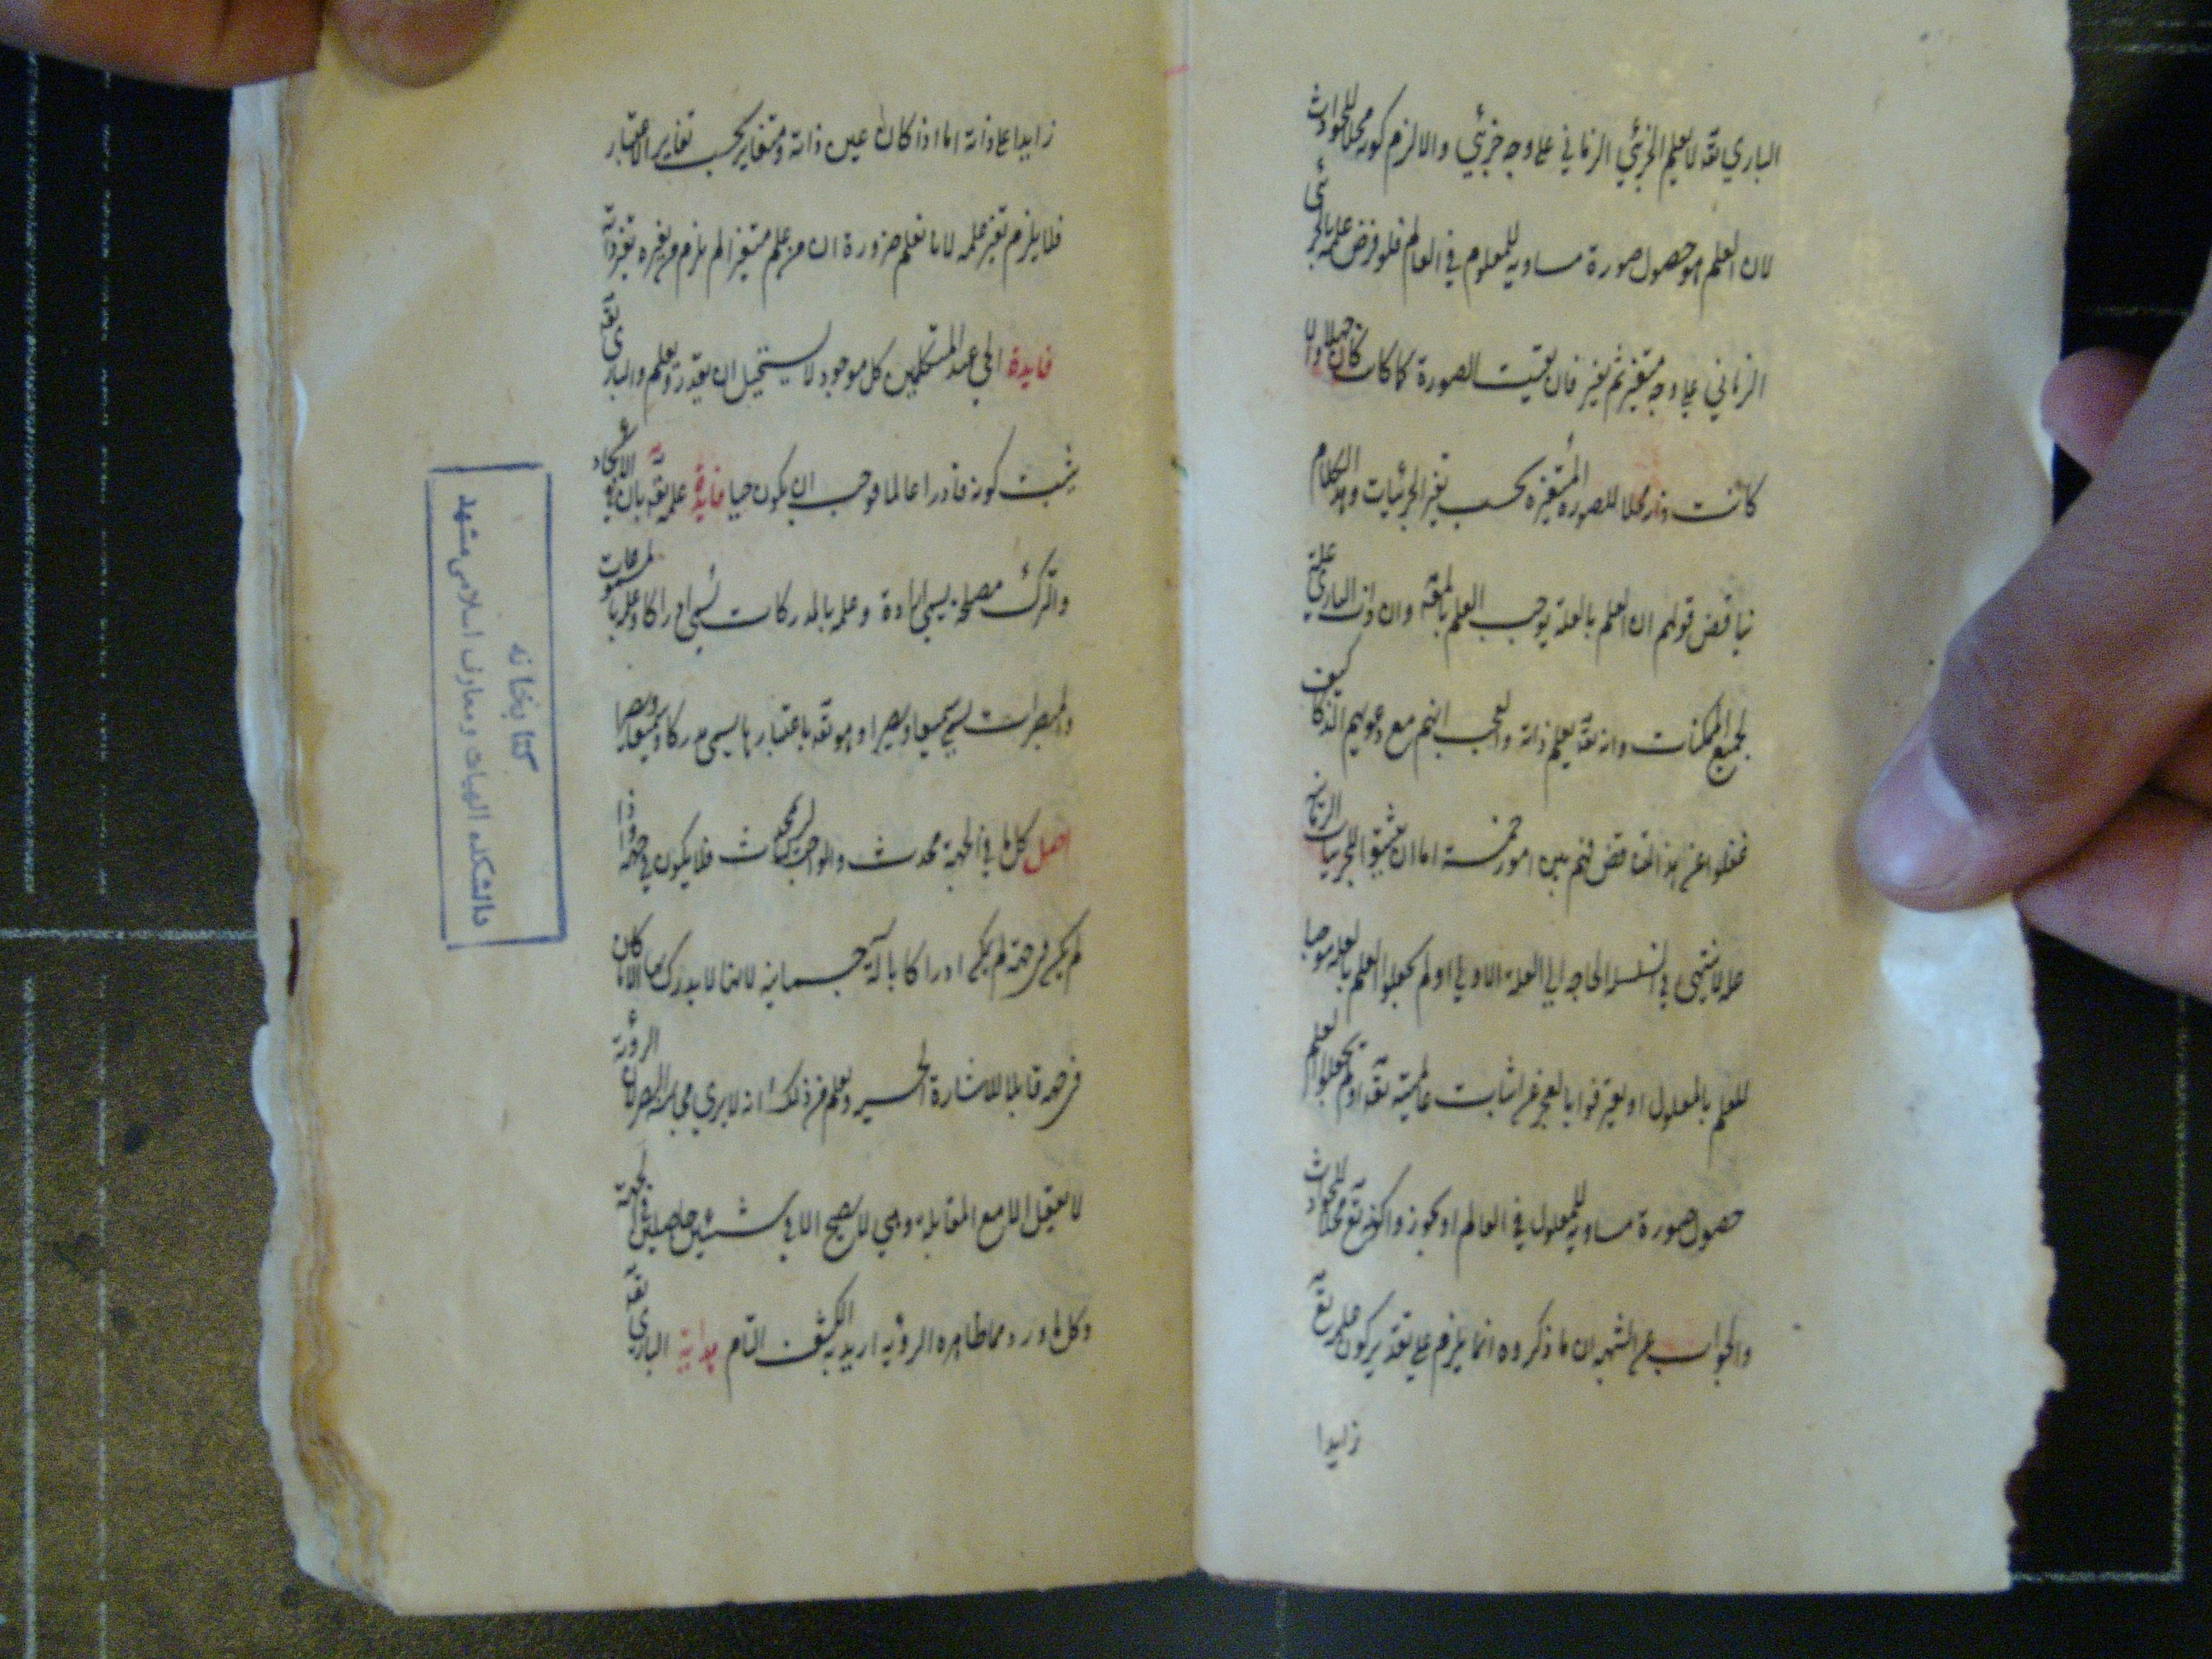 الباري تقه لا يعلم الجزئي الزماني على وجه جزئي والا لزم كونه محلا للحوادث
لان العلم هو حصول صورة مساويه للمعلوم في العالم فلو فرض علمه بالجزئي
الزماني على وجه متغير ثم تغير فان بقيت الصورة كما كانت كان جهلا والا
كانت ذاته محلا للصوره المتغيره بحسب تغير الجزئيات وهذا الكلام
يناقض قولهم ان العلم بالعلة يوجب العلم بالمعه وان ذات الباري علة
لجميع الممكنات وانه تقه يعلم ذاته والعجب انهم مع دعويهم الذكا كيف
غفلوا عن هذا التناقض فهم بين امور خمسة اما ان يثبتوا للجزئيات الزمانية
علة لا تنتهي في السلسله الحاجه الى العلة الاولى او لم يجعلوا العلم بالعله موجبا
للعلم بالمعلول او يعترفوا بالعجز عن اثبات عالميته تقه او لم يجعلوا العلم
حصول صورة مساويه للمعلول في العالم او يجوزوا كونه تقه محلا للحوادث
والجواب عن الشبهه ان ما ذكروه انما يلزم على تقدير كون علمه تقه
زايدا
زايدا على ذاته اما اذا كان عين ذاته ومتغاير بحسب تغاير الاعتبار
فلا يلزم تغير علمه لانا نعلم ضرورة ان من علم متغيرا لم يلزم من تغيره تغير ذاته
فايدة الحي عند المتكلمين كل موجود لا يستحيل ان يقدر ويعلم والباري تقه
يثبت كونه قادرا عالما فوجب ان يكون حيا فايدة علمه تقه بان في الايجاد
والترك مصلحة يسمى ارادة وعلمه بالمدركات يسمى ادراكا وعلمه بالمسموعات
والمبصرات يسمى سميعا وبصيرا وهو تقه باعتبارها يسمى مدركا وسميعا وبصيرا
اصل كل ما في الجهة محدث والواجب ليس بمحدث فلا يكون في جهة واذا
لم يكن في جهة لم يكن ادراكا بالة جسمانيه لانها لا يدرك بها الا ما كان
في جهة قابلا للاشارة الحسيه ويعلم من ذلك انه لا يرى بحاسة البصر لان الرؤية
لا تعقل الا مع المقابلة وهي لا يصح الا في شيئين حاصلين في الجهة
وكل ما ورد مما ظاهره الرؤيه اريد به الكشف التام هداية الباري تقه
كتابخانه
دانشكده الهيات ومعارف اسلامى مشهد